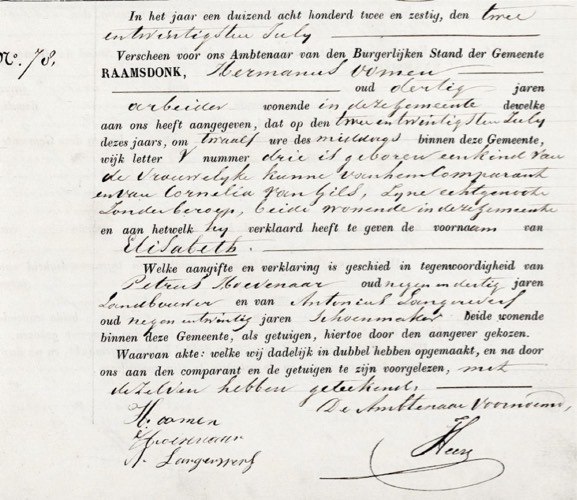 In het jaar een duizend acht honderd twee en zestig, den twee
entwintigsten July
No. 78.
Verscheen voor ons Ambtenaar van den Burgerlijken Stand der Gemeente
RAAMSDONK, Hermanus Oomen
oud dertig jaren
arbeider wonende in deze gemeente dewelke
aan ons heeft aangegeven, dat op den twee entwintigsten July
dezes jaars, om twaalf ure des middags binnen deze Gemeente,
wijk letter nummer drie is geboren een kind van
de vrouwelyke kunne van hem Comparant
en van Cornelia van Gils, zyne echtgenoote
zonder beroep, beide wonende in deze gemeente
en aan hetwelk hy verklaard heeft te geven de voornaam van
Elisabeth.
Welke aangifte en verklaring is geschied in tegenwoordigheid van
Petrus oud negen en dertig jaren
Landbouwer en van Antonius Langerwerf
oud negen entwintig jaren Schoenmaker beide wonende
binnen deze Gemeente, als getuigen, hiertoe door den aangever gekozen.
Waarvan akte: welke wij dadelijk in dubbel hebben opgemaakt, en na door
ons aan den comparant en de getuigen te zijn voorgelezen, met
dezelven hebben geteekend,
De Ambtenaar Voornoemd,
H. oomen
A. Langerwerf